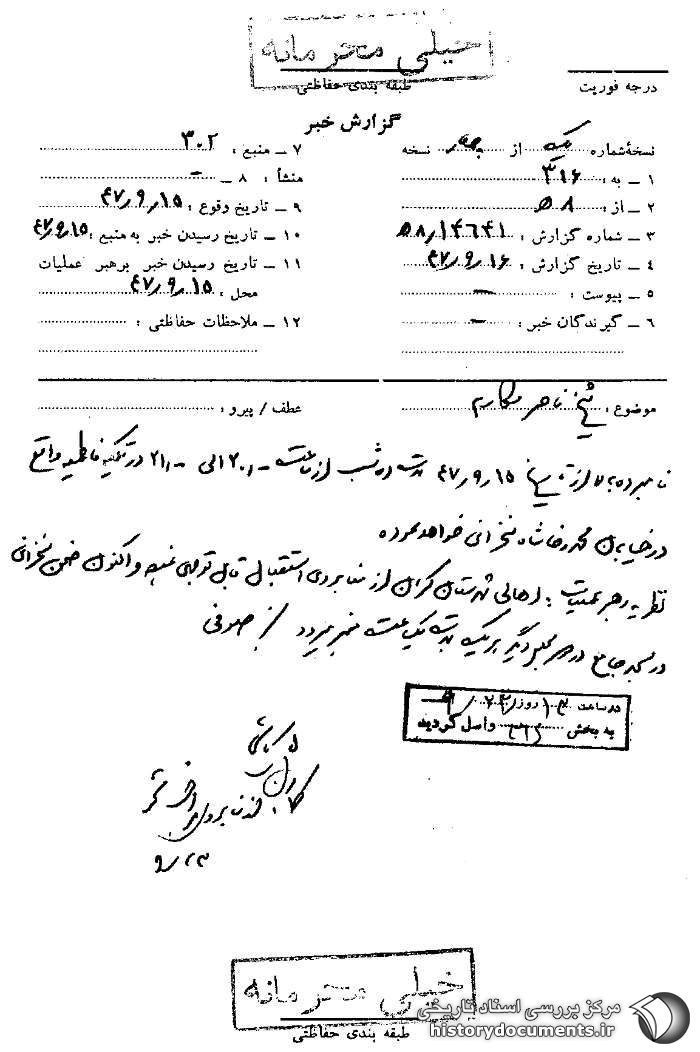 خیلی محرمانه
طبقه بندی حفاظتی
درجه فوریت
گزارش خبر
نسخهٔ شماره یک از چهار نسخه
۱ ـ به : ۳۱۶
۲ ـ از : ۵۸
۳ ـ شماره گزارش : ۵۸٫۱۴۶۴۱
۴ ـ تاریخ گزارش : ۴۷٫۹٫۱۶
۵ ـ پیوست : ـ
۶ ـ گیرندگان خبر : ـ
۷ ـ منبع : ۳۰۲
۸ ـ منشأ : ـ
۹ ـ تاریخ وقوع : ۴۷٫۹٫۱۵
۱۰ ـ تاریخ رسیدن خبر به منبع : ۴۷٫۹٫۱۵
۱۱ ـ تاریخ رسیدن خبر برهبر عملیات
محل : ۴۷٫۹٫۱۵
۱۲ ـ ملاحظات حفاظتی :
موضوع : شیخ ناصر مکارم
عطف / پیرو :
نامبرده بالا از تاریخ ۴۷٫۹٫۱۵ بمدت ده شب از ساعت ۲۰۰۰ الی ۲۱۰۰ در تکیه فاطمیه واقع
در خیابان محمدرضاشاه سخنرانی خواهد نمود
نظریه رهبر عملیات : اهالی شهرستان از نامبرده استقبال قابل توجهی نموده و اکنون ضمن سخنرانی
در مسجد جامع در مجلس دیگر هر یک بمدت یکساعت منبر میرود
در ساعت روز
به بخش ۳۱۶ واصل گردید
۹٫۲۳
خیلی محرمانه
طبقه بندی حفاظتی
مرکز بررسی اسناد تاریخی
historydocuments.ir